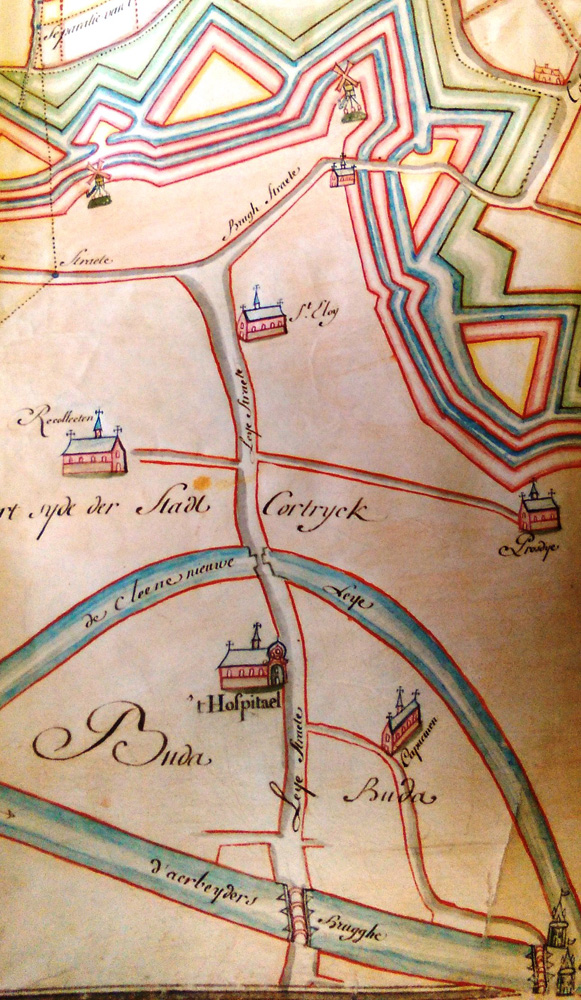 Separatie van
Brugh Straete
Straete
St. Eloy
Leye Straete
Recollecten
rt syde der Stadt Cortryck
Proostye
de Cleene nieuwe Leye
't Hospitael
Capucinen
Buda
Leye Straete
Buda
d'aerbeyders Brugghe